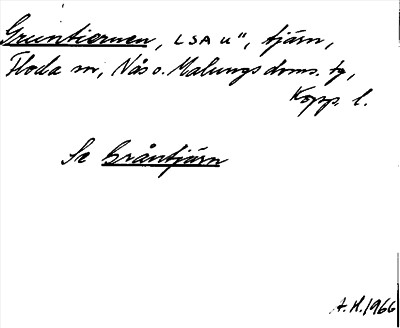 Gruntiernen, LSA u", tjärn,
Floda sn, Nås o. Malungs doms. tg,
Kopp. l.
Se Gråntjärn
A.H. 1966